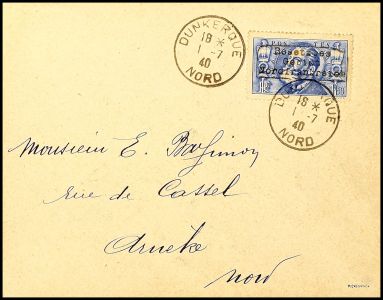 DUNKERQUE
18 *
1 -7
40
NORD
Besetztes
Gebiet
Nordfrankreich
DUNKERQUE
18 *
1 -7
40
NORD
Monsieur E.
rue de Cassel
Arnèke
Nord